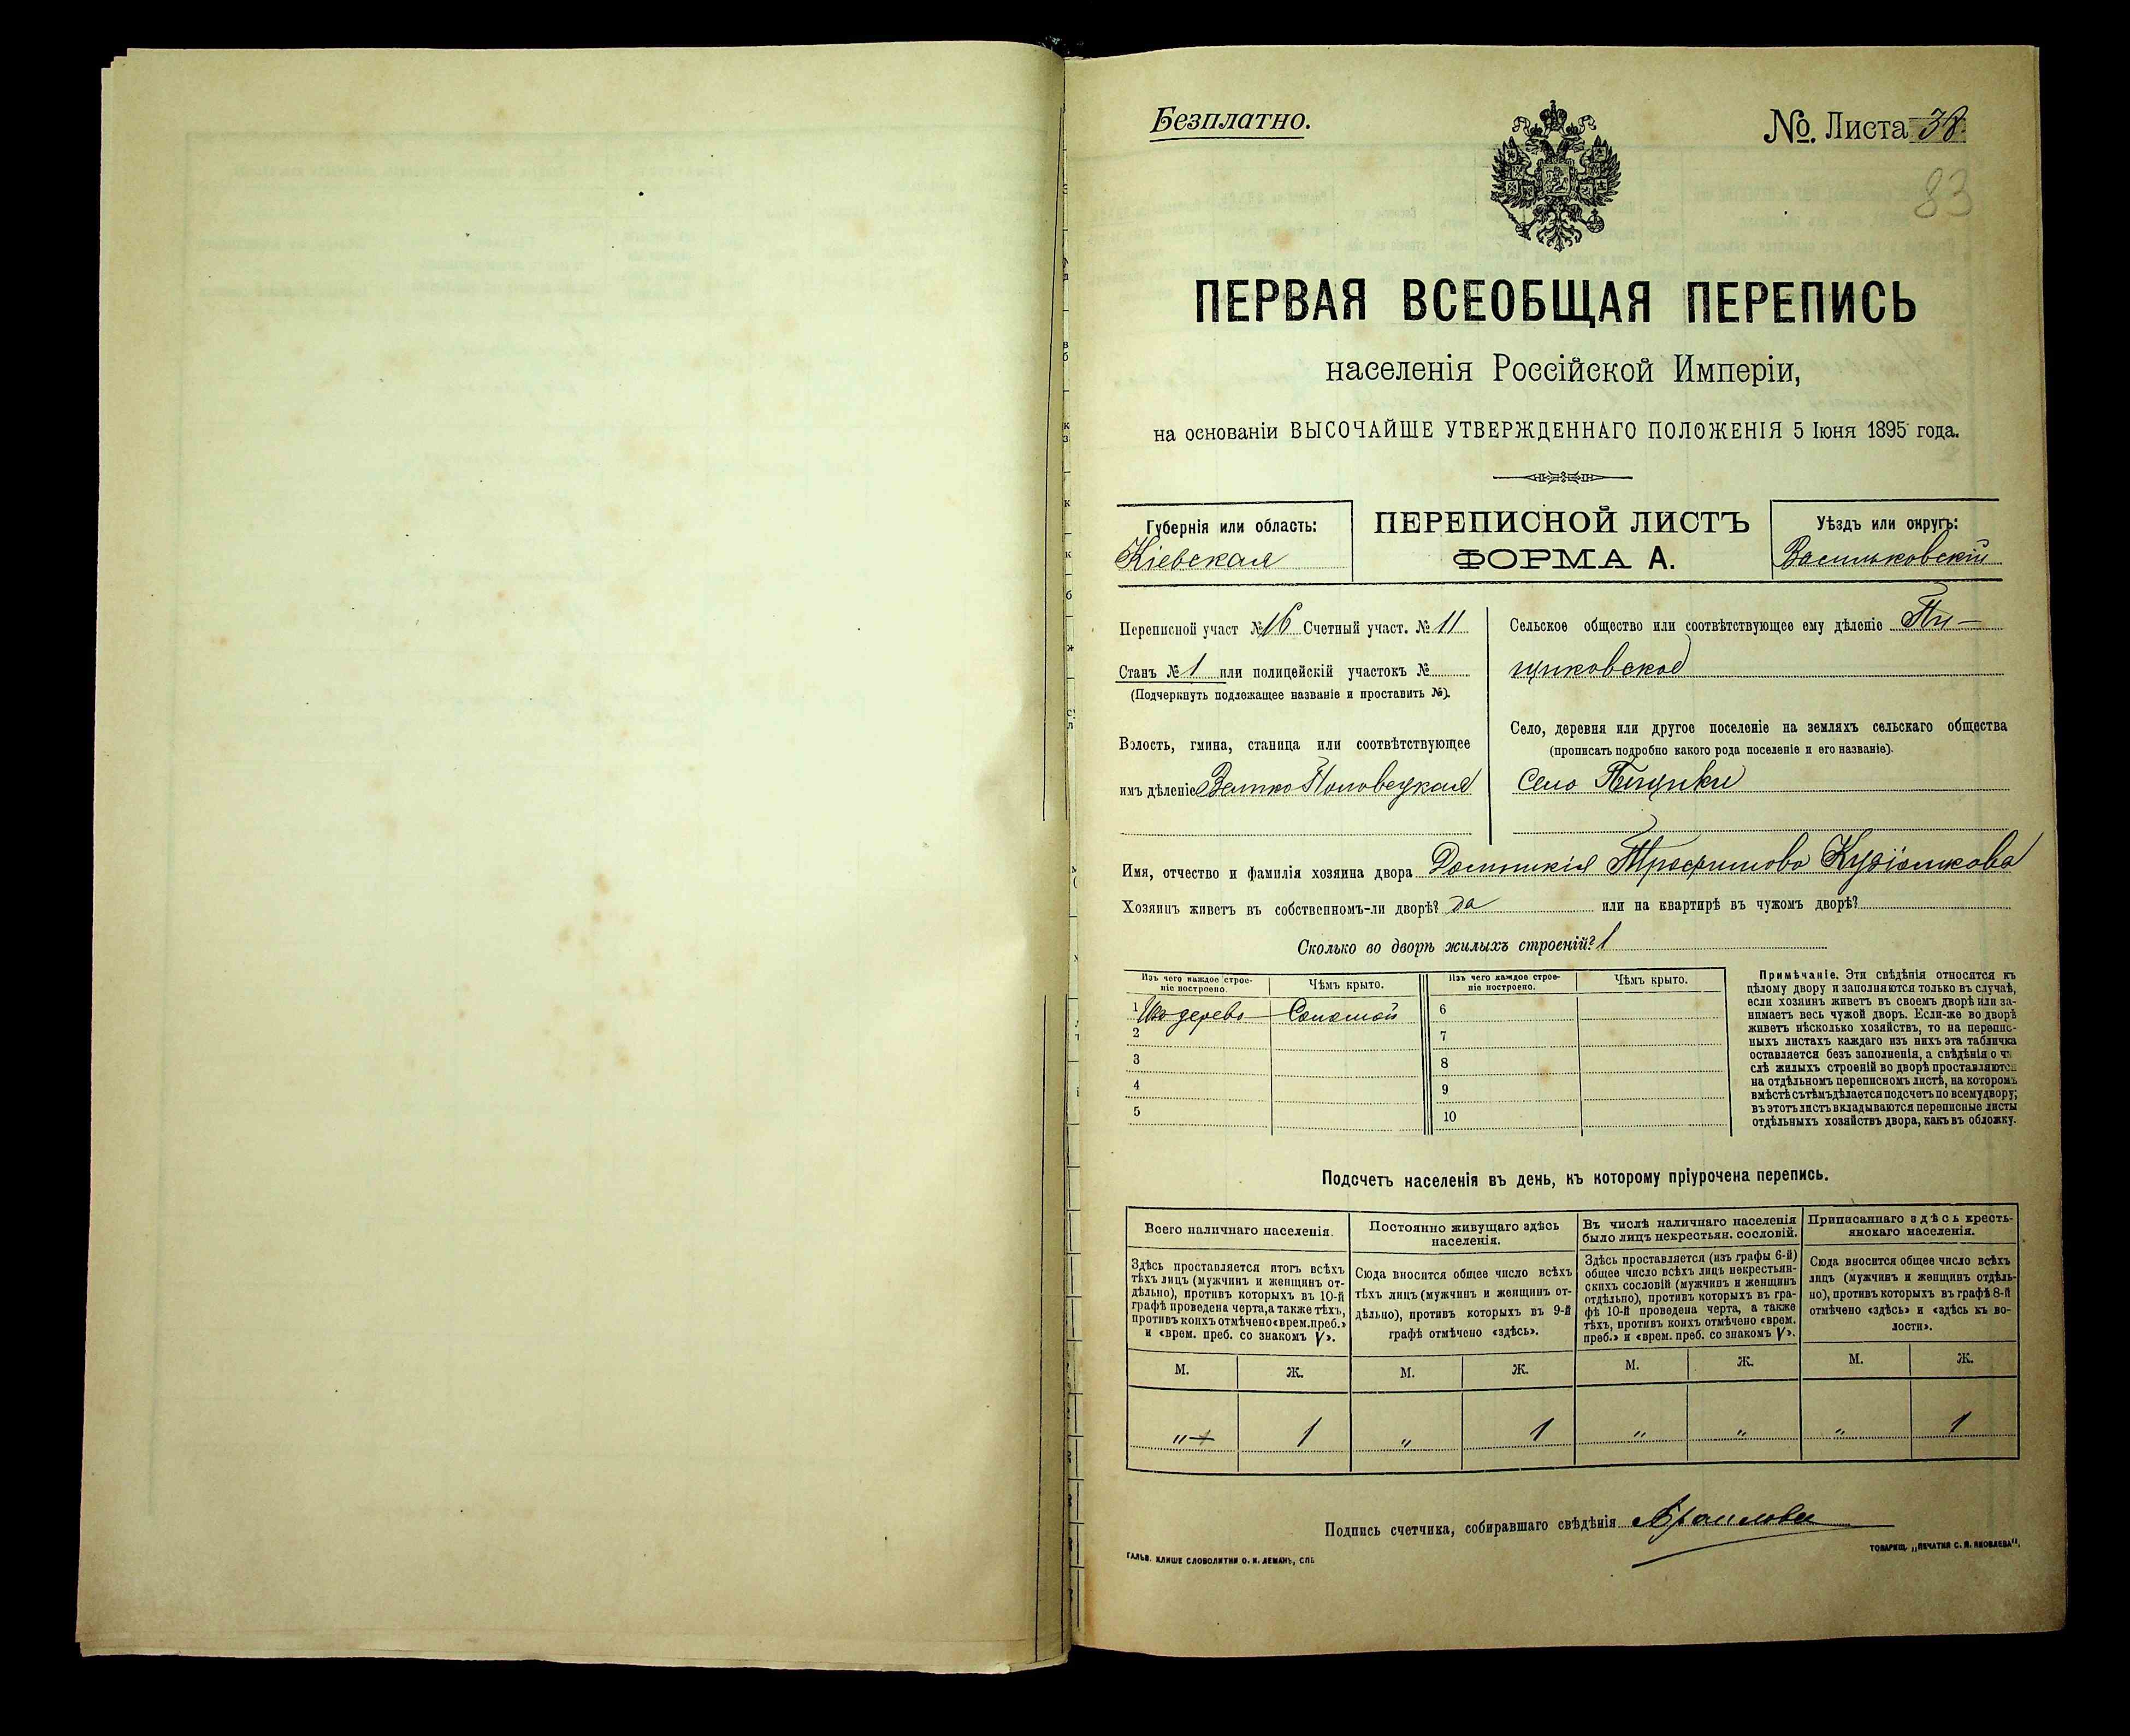 Безплатно.
№. Листа 38.
83
ПЕРВАЯ ВСЕОБЩАЯ ПЕРЕПИСЬ
населенія Россійской Имперіи,
на основаніи ВЫСОЧАЙШЕ УТВЕРЖДЕННАГО ПОЛОЖЕНІЯ 5 Іюня 1895 года.
Губернія или область:
Кіевская
ПЕРЕПИСНОЙ ЛИСТЪ
ФОРМА А.
Уѣздъ или округъ:
Васильковскій
Переписной участ № 16 Счетный участ. № 11
Станъ № 1 или полицейскій участокъ №
(Подчеркнуть подлежащее названіе и проставить №).
Волость, гмина, станица или соотвѣтствующее
имъ дѣленіе Велико Половецкая
Сельское общество или соотвѣтствующее ему дѣленіе Пи-
щиковское
Село, деревня или другое поселеніе на земляхъ сельскаго общества
(прописать подробно какого рода поселеніе и его названіе).
Село Пищики
Имя, отчество и фамилія хозяина двора Домникія Трофимова
Хозяинъ живетъ въ собственномъ-ли дворѣ? да или на квартирѣ въ чужомъ дворѣ?
Сколько во дворѣ жилыхъ строеній? 1
Изъ чего каждое строе-
ніе построено.
Чѣмъ крыто.
Изъ чего каждое строе-
ніе построено.
Чѣмъ крыто.
1 дерево Соломой 6
2 7
3 8
4 9
5 10
Примѣчаніе. Эти свѣдѣнія относятся къ
цѣлому двору и заполняются только въ случаѣ,
если хозяинъ живетъ въ своемъ дворѣ или за-
нимаетъ весь чужой дворъ. Если-же во дворѣ
живетъ нѣсколько хозяйствъ, то на перепис-
ныхъ листахъ каждаго изъ нихъ эта табличка
оставляется безъ заполненія, а свѣдѣнія о чи
слѣ жилыхъ строеній во дворѣ проставляются
на отдѣльномъ переписномъ листѣ, на которомъ
вмѣстѣ съ тѣмъ дѣлается подсчетъ по всему двору;
въ этотъ листъ вкладываются переписные листы
отдѣльныхъ хозяйствъ двора, какъ въ обложку.
Подсчетъ населенія въ день, къ которому пріурочена перепись.
Всего наличнаго населенія.
Здѣсь проставляется итогъ всѣхъ
тѣхъ лицъ (мужчинъ и женщинъ от-
дѣльно), противъ которыхъ въ 10-й
графѣ проведена черта, а также тѣхъ,
противъ коихъ отмѣчено «врем. преб.»
и «врем. преб. со знакомъ V».
Постоянно живущаго здѣсь
населенія.
Сюда вносится общее число всѣхъ
тѣхъ лицъ (мужчинъ и женщинъ от-
дѣльно), противъ которыхъ въ 9-й
графѣ отмѣчено «здѣсь».
Въ числѣ наличнаго населенія
было лицъ некрестьян. сословій.
Здѣсь проставляется (изъ графы 6-й)
общее число всѣхъ лицъ некрестьян-
скихъ сословій (мужчинъ и женщинъ
отдѣльно), противъ которыхъ въ гра-
фѣ 10-й проведена черта, а также
тѣхъ, противъ коихъ отмѣчено «врем.
преб.» и «врем. преб. со знакомъ V».
Приписаннаго здѣсь кресть-
янскаго населенія.
Сюда вносится общее число всѣхъ
лицъ (мужчинъ и женщинъ отдѣль-
но), противъ которыхъ въ графѣ 8-й
отмѣчено «здѣсь» и «здѣсь къ во-
лости».
М. Ж. М. Ж. М. Ж. М. Ж.
" 1 " 1 " " " 1
Подпись счетчика, собиравшаго свѣдѣнія
ГАЛЬВ. КЛИШЕ СЛОВОЛИТНИ О. И. ЛЕМАНЪ, СПБ
ТОВАРИЩ. „ПЕЧАТНЯ С. П. ЯКОВЛЕВА".